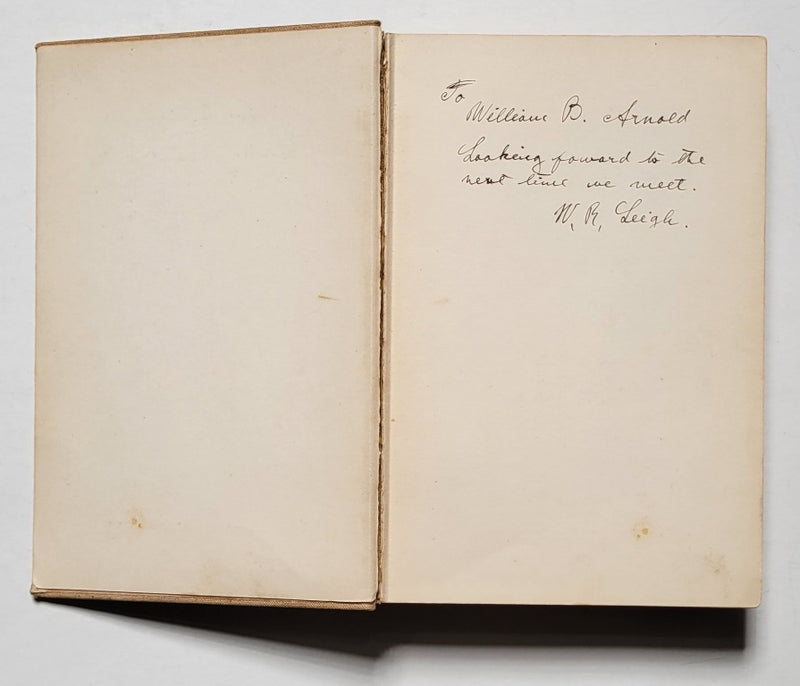 To
William B. Arnold
Looking foward to the
next time we meet.
W. R. Leigh.